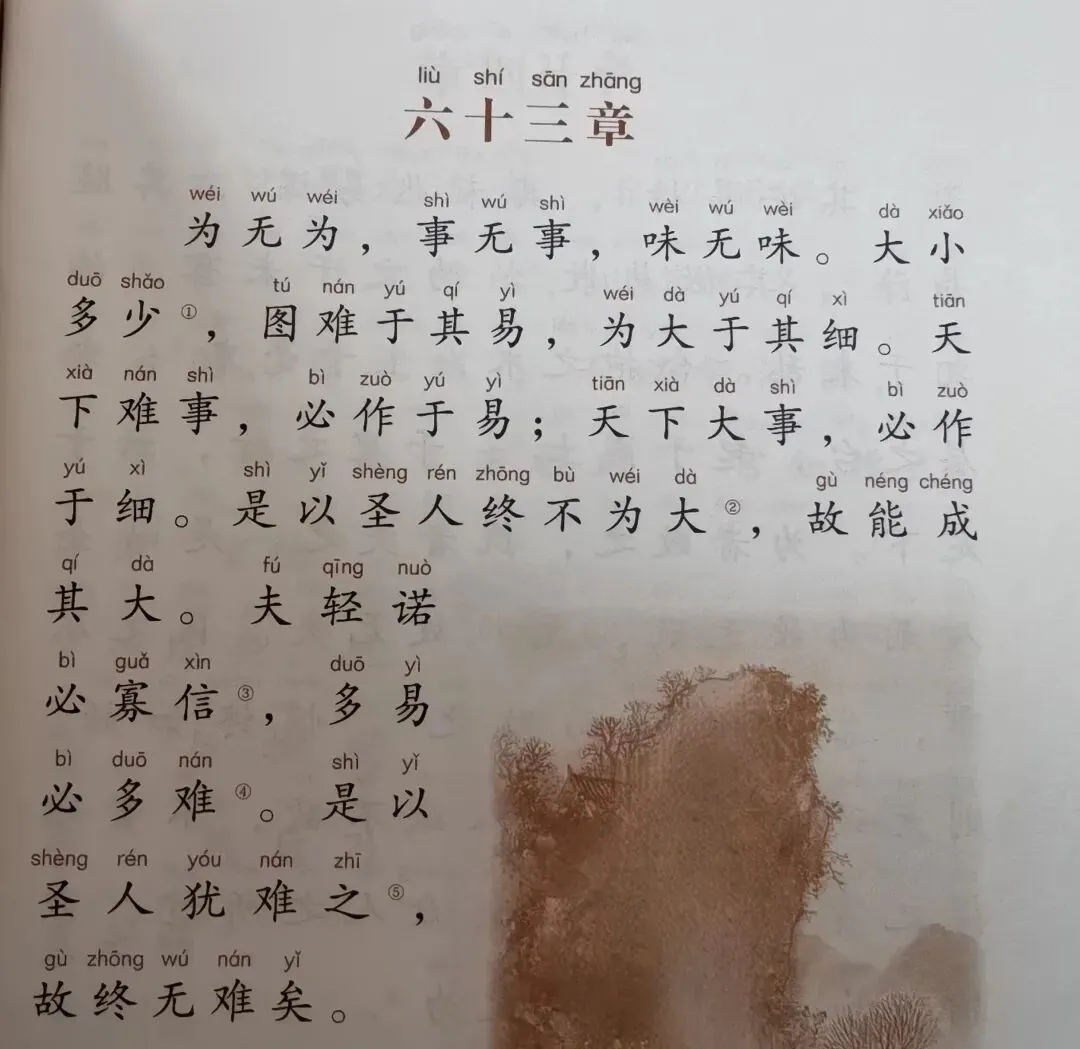 liù shí sān zhāng
六十三章
wéi wú wéi shì wú shì wèi wú wèi dà xiǎo
为无为，事无事，味无味。大小
duō shǎo tú nán yú qí yì wéi dà yú qí xì tiān
多少①，图难于其易，为大于其细。天
xià nán shì bì zuò yú yì tiān xià dà shì bì zuò
下难事，必作于易；天下大事，必作
yú xì shì yǐ shèng rén zhōng bù wéi dà gù néng chéng
于细。是以圣人终不为大②，故能成
qí dà fú qīng nuò
其大。夫轻诺
bì guǎ xìn duō yì
必寡信③，多易
bì duō nán shì yǐ
必多难④。是以
shèng rén yóu nán zhī
圣人犹难之⑤，
gù zhōng wú nán yǐ
故终无难矣。